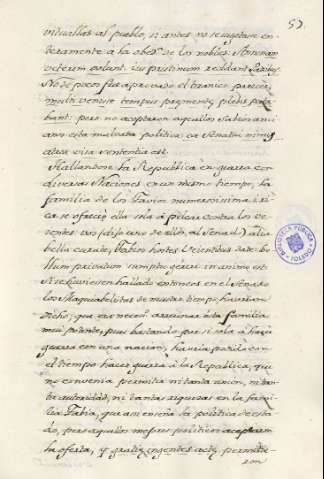 57.
vituallas al pueblo, si antes no se sugetase en-
teramente a la obed.ª de los nobles.
veterem volunt. ius pristinum reddant Patribus
No de pocos fue apreciado el tiranico parecer,
multi venisse tempus premendę plebis puta-
bant: pero no aceptaron aquellos Sabios anci-
anos esta malvada politica: ea Senatui nimis
atrox visa sententia est
Hallandose la Republica en guerra con
diversas Naciones en un mismo tiempo, la
familia de los Favios numerosissima i ri-
ca se ofreciò ella sola à pelear contra los ve-
yentes. vos (dijo uno de ellos, al Senado) alia
bella curate, Fabios hostes Veientibus date.
bellum privatum sumptu gerere in animo est.
Si se huviesen hallado entonces en el Senado
los Maquiabelistas de nuestro tiempo, huvieran
dicho, que era necess.º arruinar à esta familia
mui potente, pues bastando por si sola à hacer
guerra con una nacion, havria podido con
el tiempo hacer guerra à la Republica, que
no convenia permitir ni tanta union, ni tan-
ta autoridad, ni tantas riquezas en la fami-
lia Fabia, que asi enseña la politica de esta-
do, pero aquellos mejores politicos aceptaron
la oferta, y gratię ingentes actę, permitie-
ron
BIBLIOTECA PUBLICA
TOLEDO